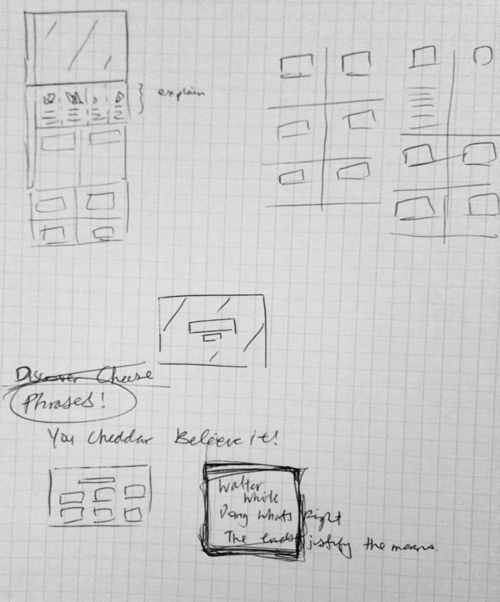 explain
Discover Cheese
Phrases!
You Cheddar Believe it!
Walter
White
Doing whats Right
The ends justify the means.